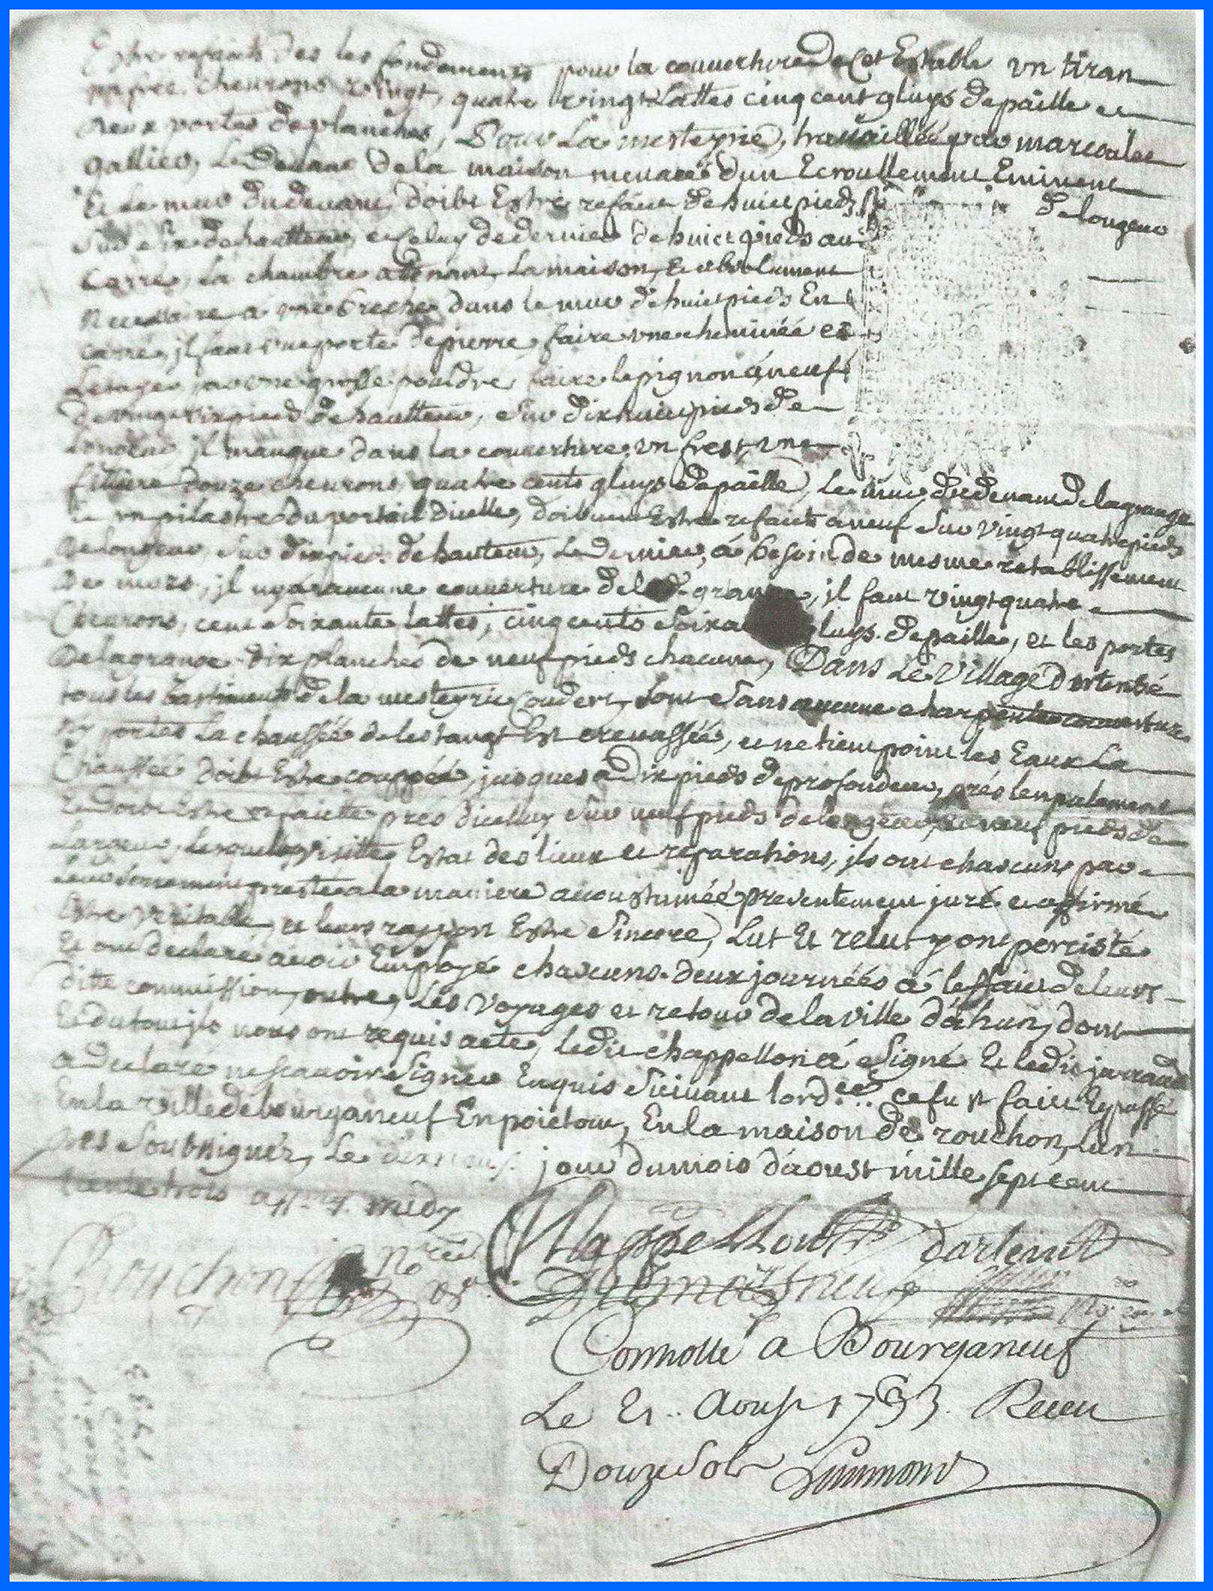 Estre refaits des les fondements pour la couverture de Cet Estable vn tiran
chevrons vingt, quatre vingt Lattes cinq cent gluys de paille et
deux portes de planches, Pour La mesteyrie, travaillée par
Le devant de la maison menace d'un Ecroullement Eminent
Et Le mur du devant, doibt Estre refait de huict pieds de longeur
sur six de hautteur, et Celuy de dernier de huict pieds au
Carré, La chambre attenant La maison, Et absolument
Necessaire a vne breche dans le mur de huict pieds En
carré, jl faut vne porte de pierre, faire vne cheminée et
par vne grosse pouldre, faire le pignon á neuf
de hautteur, sur dix huict pieds de
jl manque dans la couverture, vn frest, vne
filiere douze chevrons, quatre cents gluys de paille, Le mur du devant de la grange
pilastre du portail d'icelle, doibvent Estre refaits á neuf sur vingt quatre pieds
de longeur, sur dix pieds de hauteur, Le dernier, á besoin de mesme retablissement
de murs, jl ny a aucune couverture de grange, jl faut vingt quatre
Chevrons, cent soixante lattes, cinq cents gluys de paille, et les portes
de la grange dix planches de neuf pieds chacune, Dans Le Village
tous les bastiments de la mesteyrie Couderc, sont sans aucune charpente couverture
ny portes La chaussée de lestangt Est crevassée, et ne tient point les Eaux La
Chaussée doibt Estre couppée, jusques á Dix pieds de profondeur, prés
Et doibt Estre refaitte prés dicelluy sur neuf pieds de longeur, neuf pieds de
Largeur, visitte Estat des lieux et réparations, jls ont chascuns par
serment presté a la maniere accoustumée presentement juré et affirmé
Estre Veritable, et leurs rapport Estre Sincere, Lut Et relut y ont percisté
Et ont declaré avoir Employé chascuns deux journées á leffait de leurs
ditte commission, outre, Les Voyages et retour de la ville d'áhun, dont
Et du tout jls nous ont requis acte, ledit chappellon á Signé Et ledit jarraud
a declaré ne scavoir Signer Enquis Suivant lord.ce ce fut fait Et passé
En la ville de bourganeuf En poictou, En la maison de rouchon, lun
nes Soubsignés, Le dix neuf jour du mois d'aoust mille sept cent
trente trois midy
Chappellon
Rouchon Nre
Controllé a Bourganeuf
Le 21. Aoust 1733. Receu
Douze Sols
1733